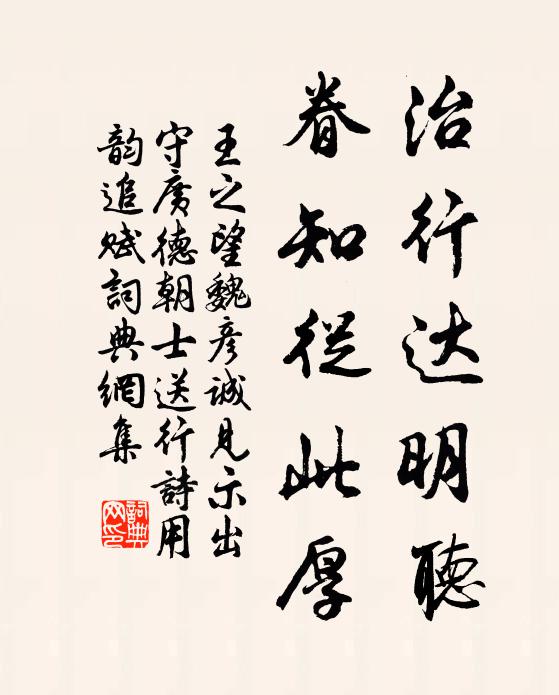 治行达明聽
眷知從此厚
王之望魏彥誠見示出
守廣德朝士送行詩用
韵追赋詞典網集
詞典网印